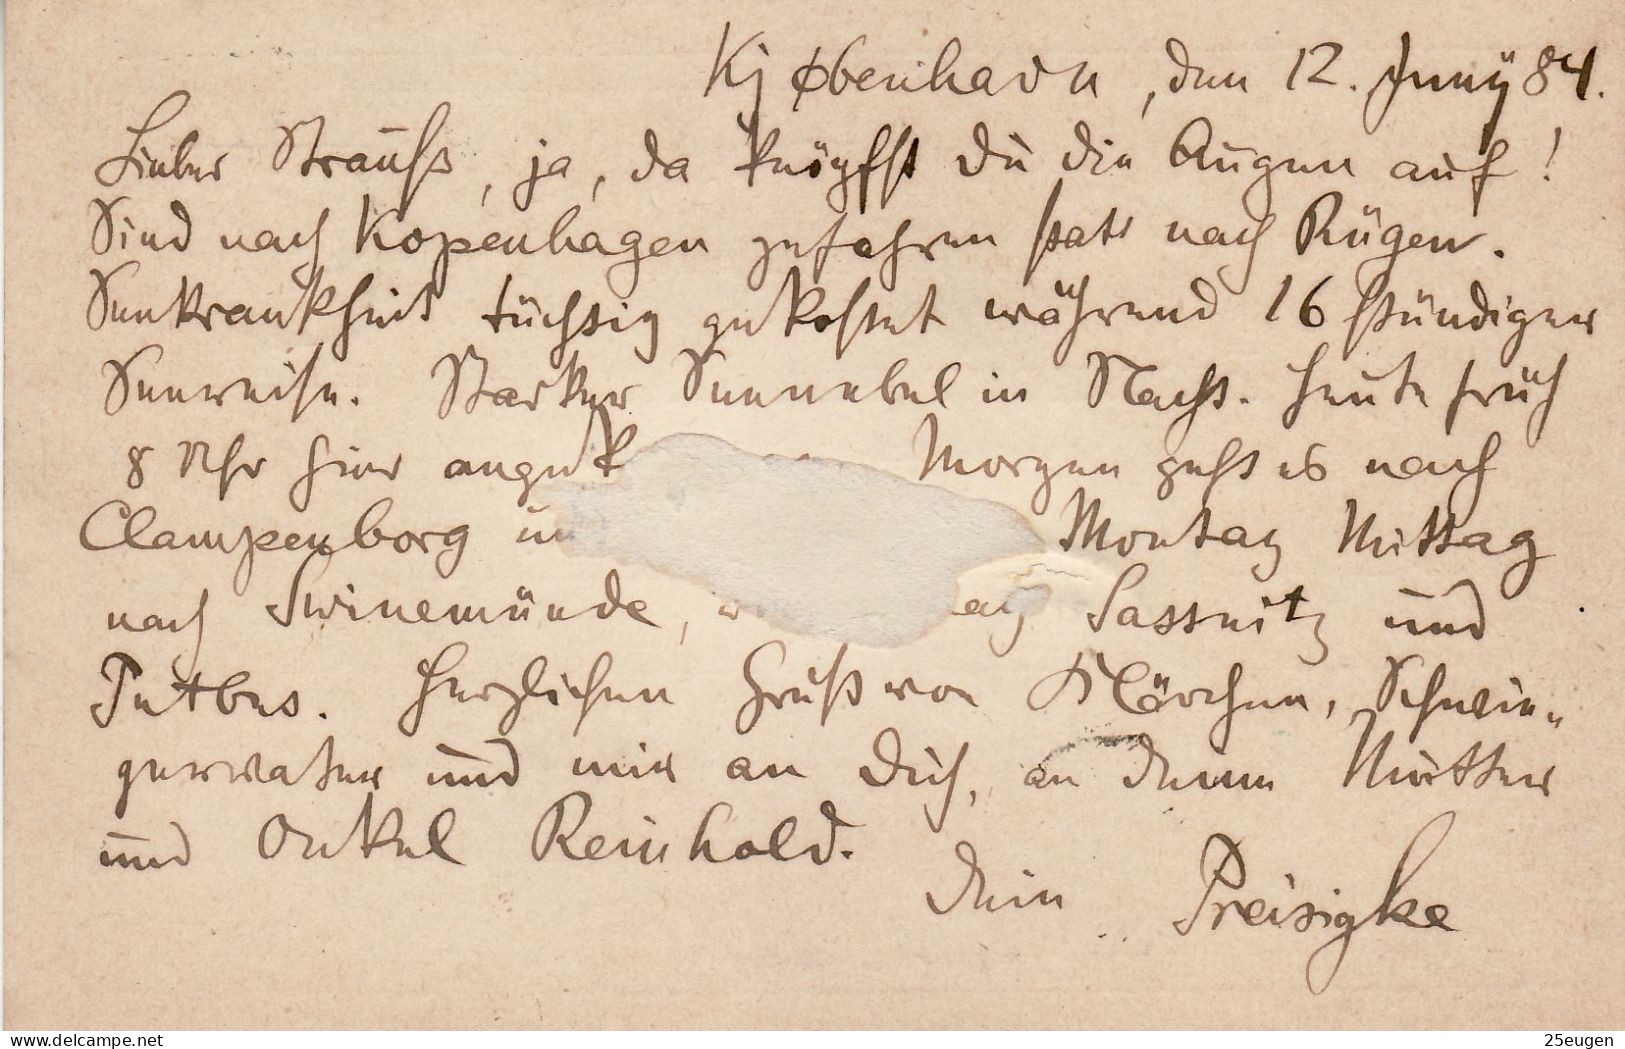 Kjøbenhavn, den 12. Juny 84.
Lieber Strauß, ja, da knöpfst Du die Augen auf!
Sind nach Kopenhagen gefahren statt nach Rügen.
Seekrankheit tüchtig gekostet während 16 stündiger
Seereise. Starker Seenebel in Nacht. Heute früh
8 Uhr hier angek Morgen geht es nach
Clampenborg un Montag Mittag
nach Swinemünde, Sassnitz und
Putbus. Herzlichen Gruß von Klärchen, Schwie-
gervater und mir an Dich, an Deine Mutter
und Onkel Reinhold.
Dein Preisigke
25eugen